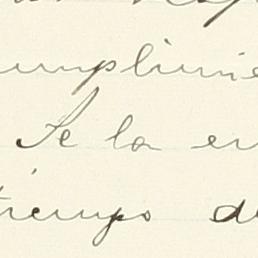 umplimie
Se la en
tiempo de